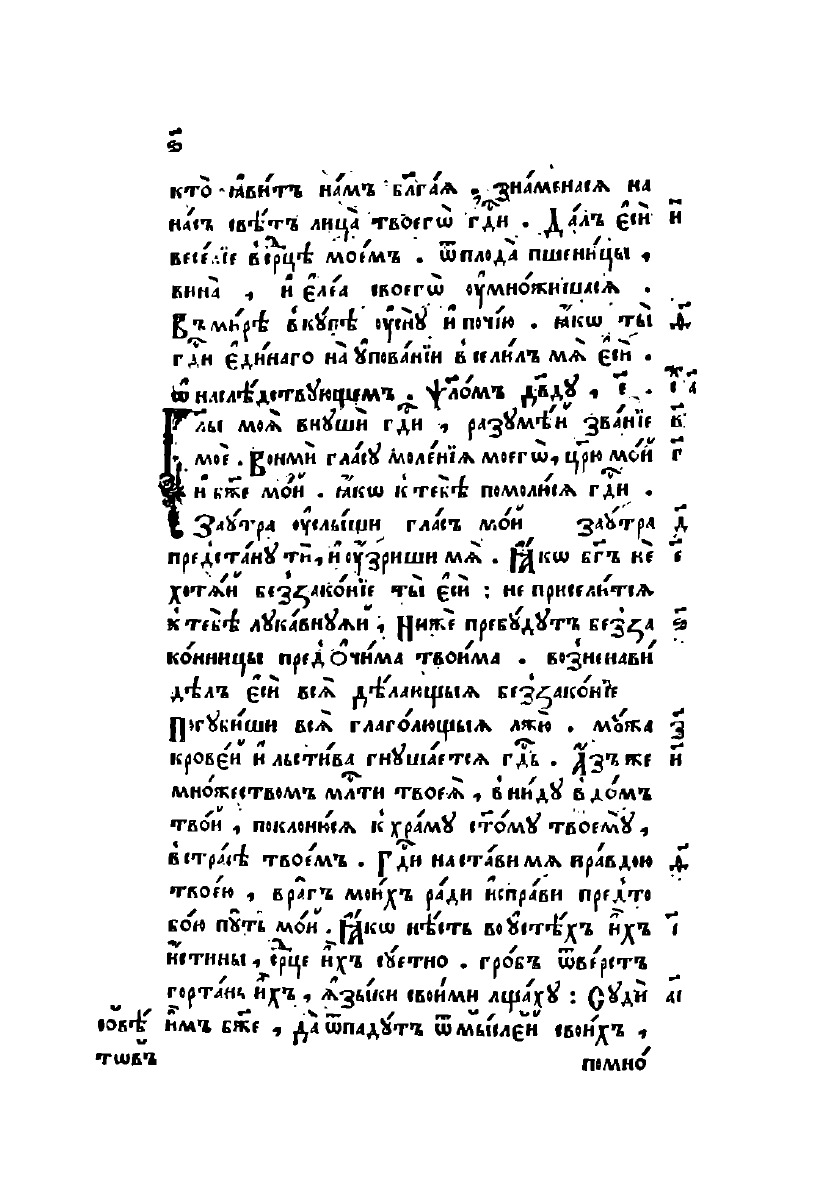 ѕ҃
кто̀ ꙗ҆ви́тъ на́мъ бл҃га́ѧ . зна́менасѧ на
на́съ свѣ́тъ лица̀ твоегѡ̀ гдⷭ҇и . Да́лъ є҆сѝ и҃
весе́лїе в̾срⷣцѣ мое́мъ . ѿплода̀ пшени́цы ,
вина̀ , и҆ є҆ле́а своегѡ̀ оу҆мно́жишасѧ .
Въми́рѣ вкꙋ́пѣ оу҆снꙋ̀ и҆ почі́ю . ꙗ҆́кѡ ты̀ ѳ҃
гдⷭ҇и є҆ди́наго на ᲂу҆пова́нїи всели́лъ мѧ̀ є҆сѝ .
ѡ҆ наслѣ́дствꙋющемъ . ѱло́мъ дв҃дꙋ , є҃ . а҃
Гл҃ы моѧ̀ внꙋшѝ гдⷭ҇и , разꙋмѣ́й зва́нїе в҃
моѐ . Вонмѝ гла́сꙋ моле́нїѧ моегѡ̀ , цр҃ю мо́й г҃
и҆ бж҃е мо́й . ꙗ҆́кѡ к̾тебѣ̀ помолю́сѧ гдⷭ҇и .
Заꙋ́тра оу҆слы́ши гла́съ мо́й заꙋ́тра д҃
предста́нꙋ тѝ , и҆ оу҆́зриши мѧ̀ . Ꙗ҆́кѡ бг҃ъ не є҃
хотѧ́й беззако́нїе ты̀ є҆сѝ : не присели́тсѧ
к̾тебѣ̀ лꙋка́внꙋѧй , Нижѐ пребꙋ́дꙋтъ безза ѕ҃
ко́нницы пред̾ ѻ҆чи́ма твои́ма . возненави́
дѣлъ є҆сѝ всѧ̀ дѣ́лающыѧ беззако́нїе
Погꙋби́ши всѧ̀ глаго́лющыѧ лжꙋ̀ . мꙋ́жа з҃
крове́й и҆ льсти́ва гнꙋша́етсѧ гдⷭ҇ь . А҆́зъ же и҃
мно́жествомъ млⷭ҇ти твоеѧ̀ , вни́дꙋ в до́мъ
тво́й , поклоню́сѧ к хра́мꙋ ст҃о́мꙋ твоемꙋ̀ ,
в̾стра́сѣ твое́мъ . Гдⷭ҇и наста́ви мѧ правдою ѳ҃
твое́ю , вра̑гъ мои́хъ ра́ди и҆спра́ви пред̾то
бо́ю пꙋ́ть мо́й . Ꙗ҆́кѡ нѣ́сть во ᲂу҆стѣ́хъ и҆́хъ і҃
и҆́стины , срⷣце и҆́хъ сꙋ́етно . гро́бъ ѿве́рстъ
горта́нь и҆́хъ , ѧ҆зы́ки свои́ми лща́хꙋ : Сꙋдѝ а҃і
и҆́мъ бж҃е , да̀ ѿпадꙋ́тъ ѿ мы́слей свои́хъ ,
совѣ́
тѡвъ
помно́